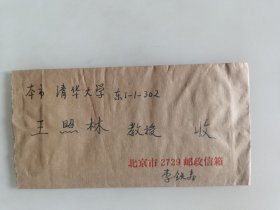 本市 清华大学 东1-1-302
王照林 教授 收
北京市2729邮政信箱
李铁寿